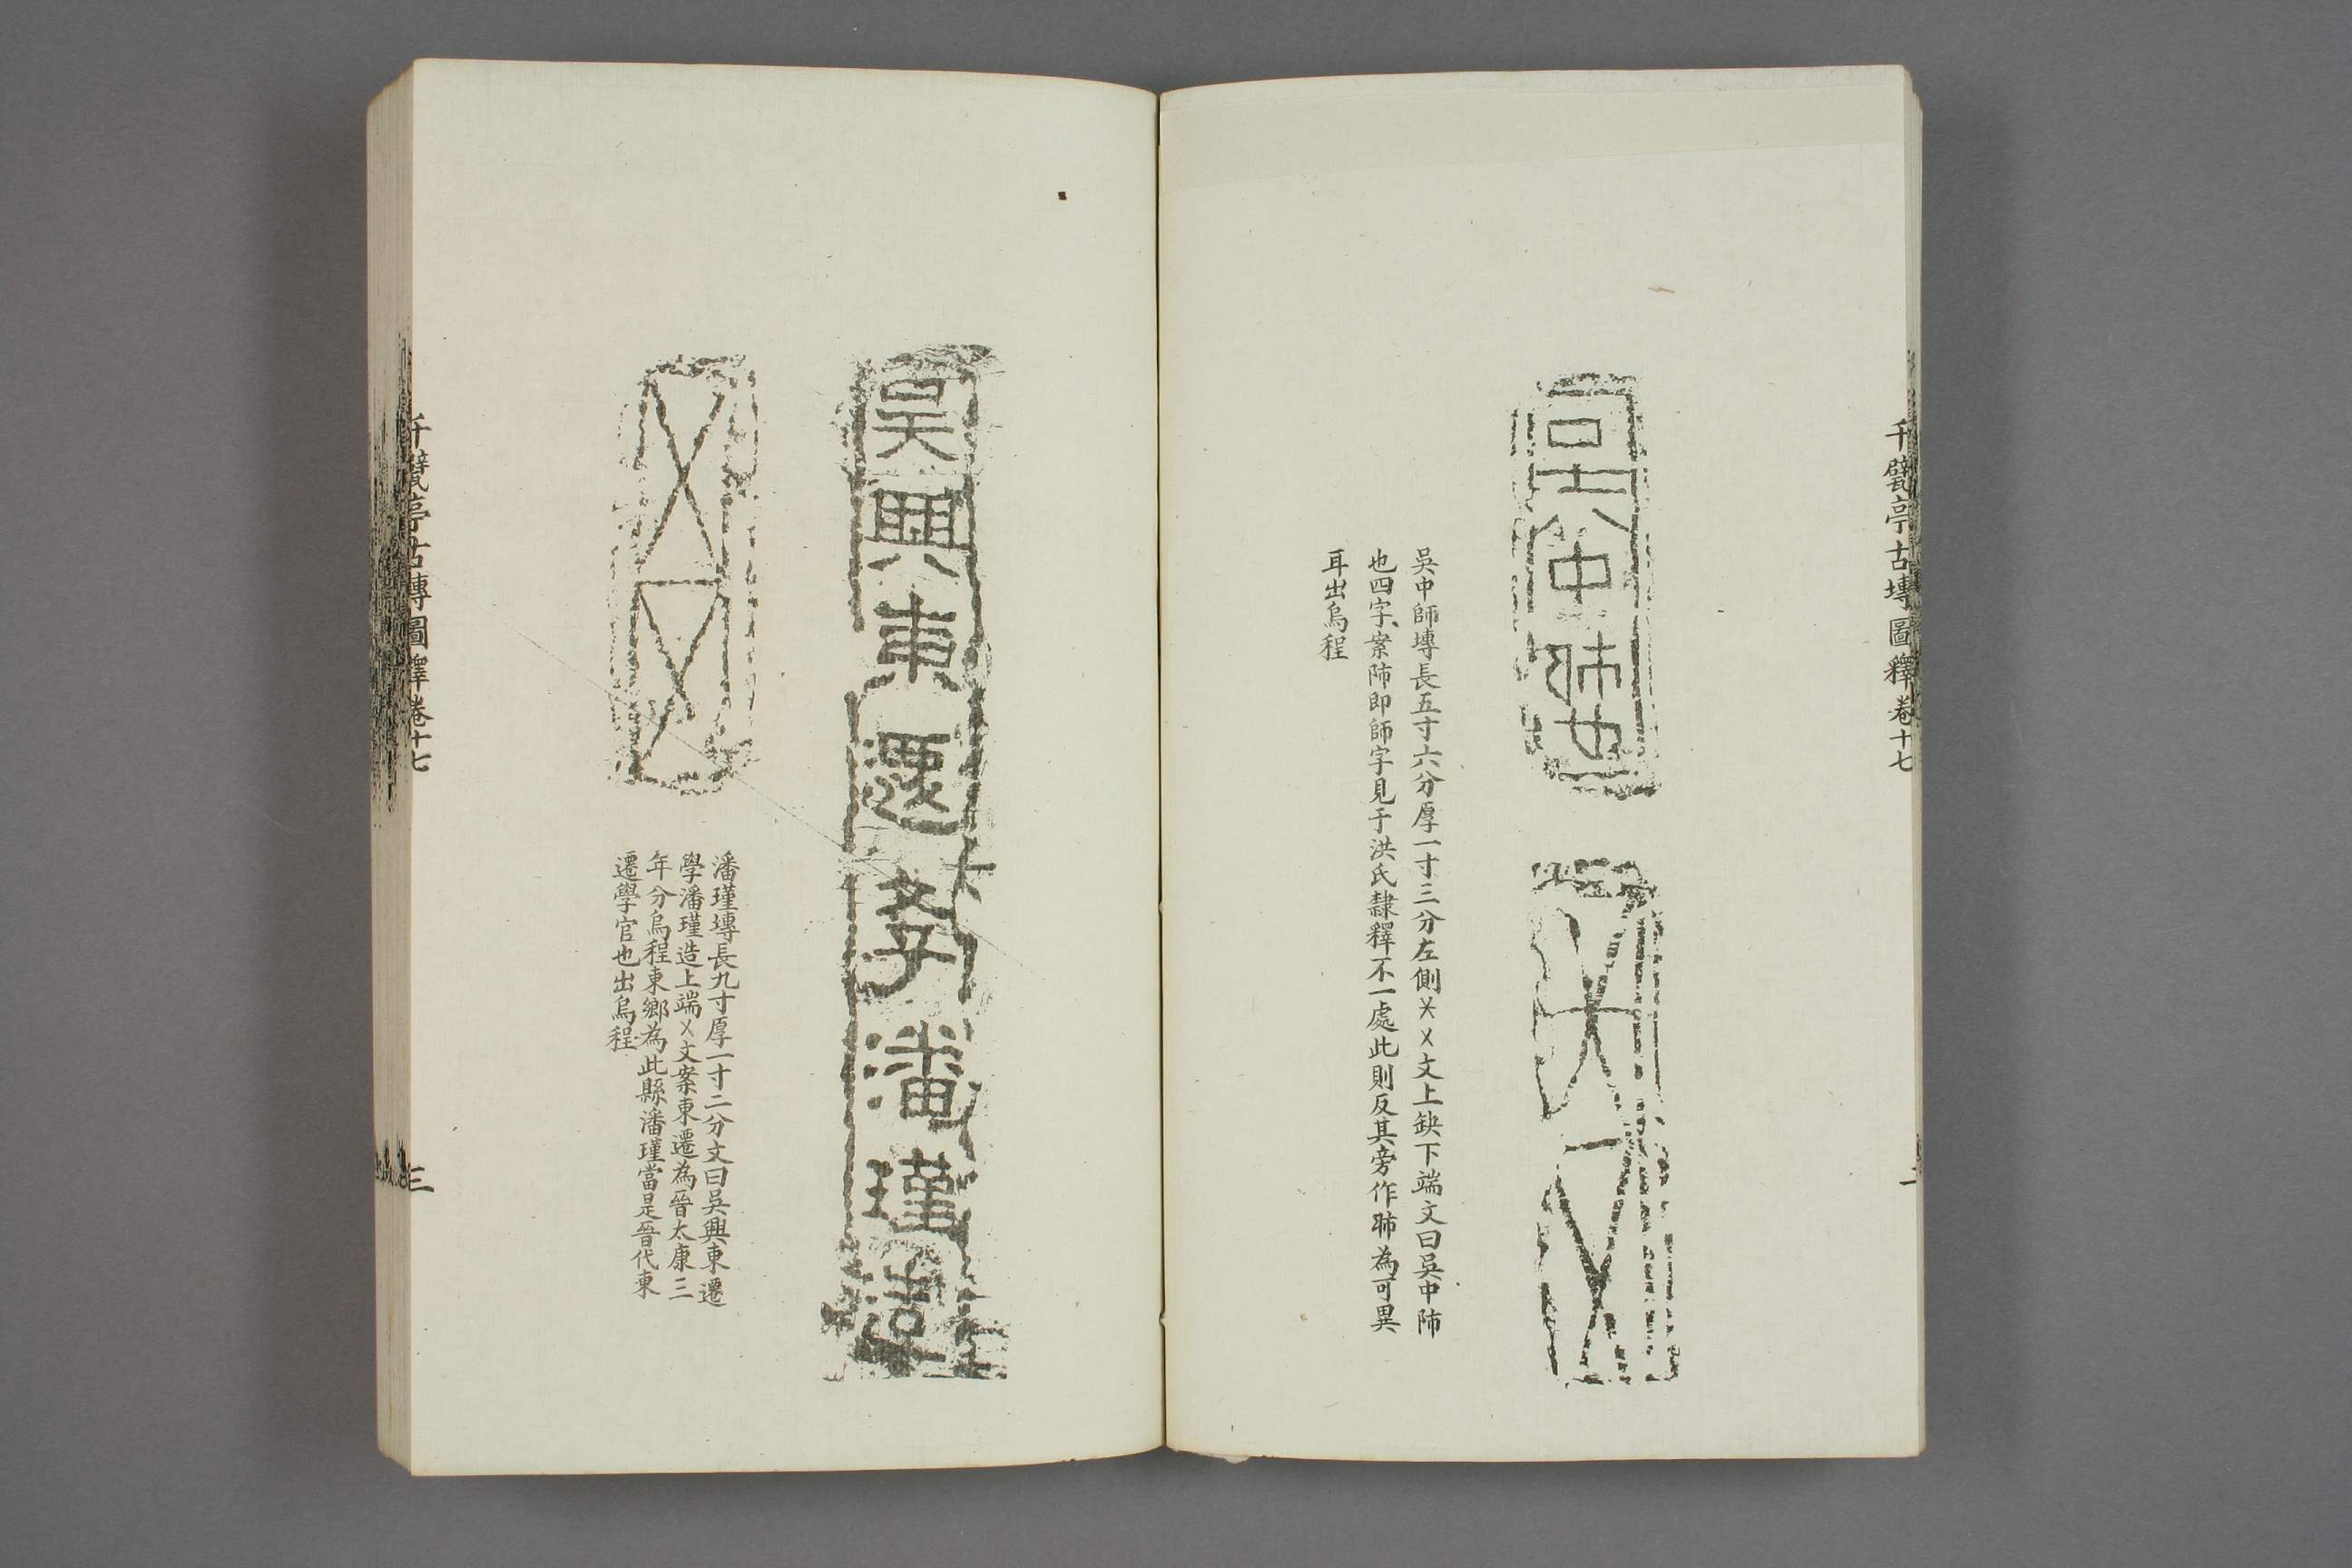 千甓亭古塼圖釋卷十七
二
吳中師也
吳中師塼長五寸六分厚一寸三分左側㐅㐅文上缺下端文曰吳中𠂤
也四字案𠂤即師字見于洪氏隸釋不一處此則反其旁作𠂤為可異
耳出烏程
吳興東遷學潘瑾造
潘瑾塼長九寸厚一寸二分文曰吳興東遷
學潘瑾造上端㐅文案東遷為晉太康三
年分烏程東鄉為此縣潘瑾當是晉代東
遷學官也出烏程
千甓亭古塼圖釋卷十七
三